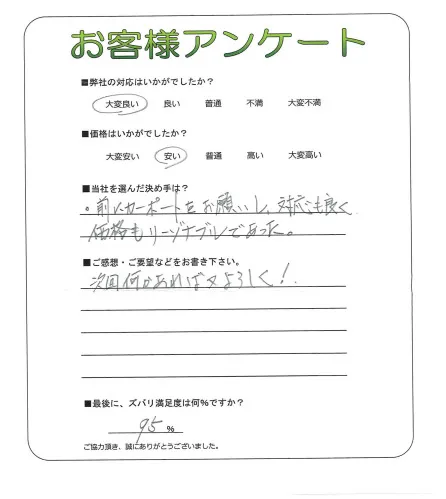 お客様アンケート
■弊社の対応はいかがでしたか？
大変良い 良い 普通 不満 大変不満
■価格はいかがでしたか？
大変安い 安い 普通 高い 大変高い
■当社を選んだ決め手は？
・前にカーポートをお願いし、対応も良く
価格もリーゾナブルであった。
■ご感想・ご要望などをお書き下さい。
次回何かあれば又よろしく！
■最後に、ズバリ満足度は何％ですか？
95 ％
ご協力頂き、誠にありがとうございました。